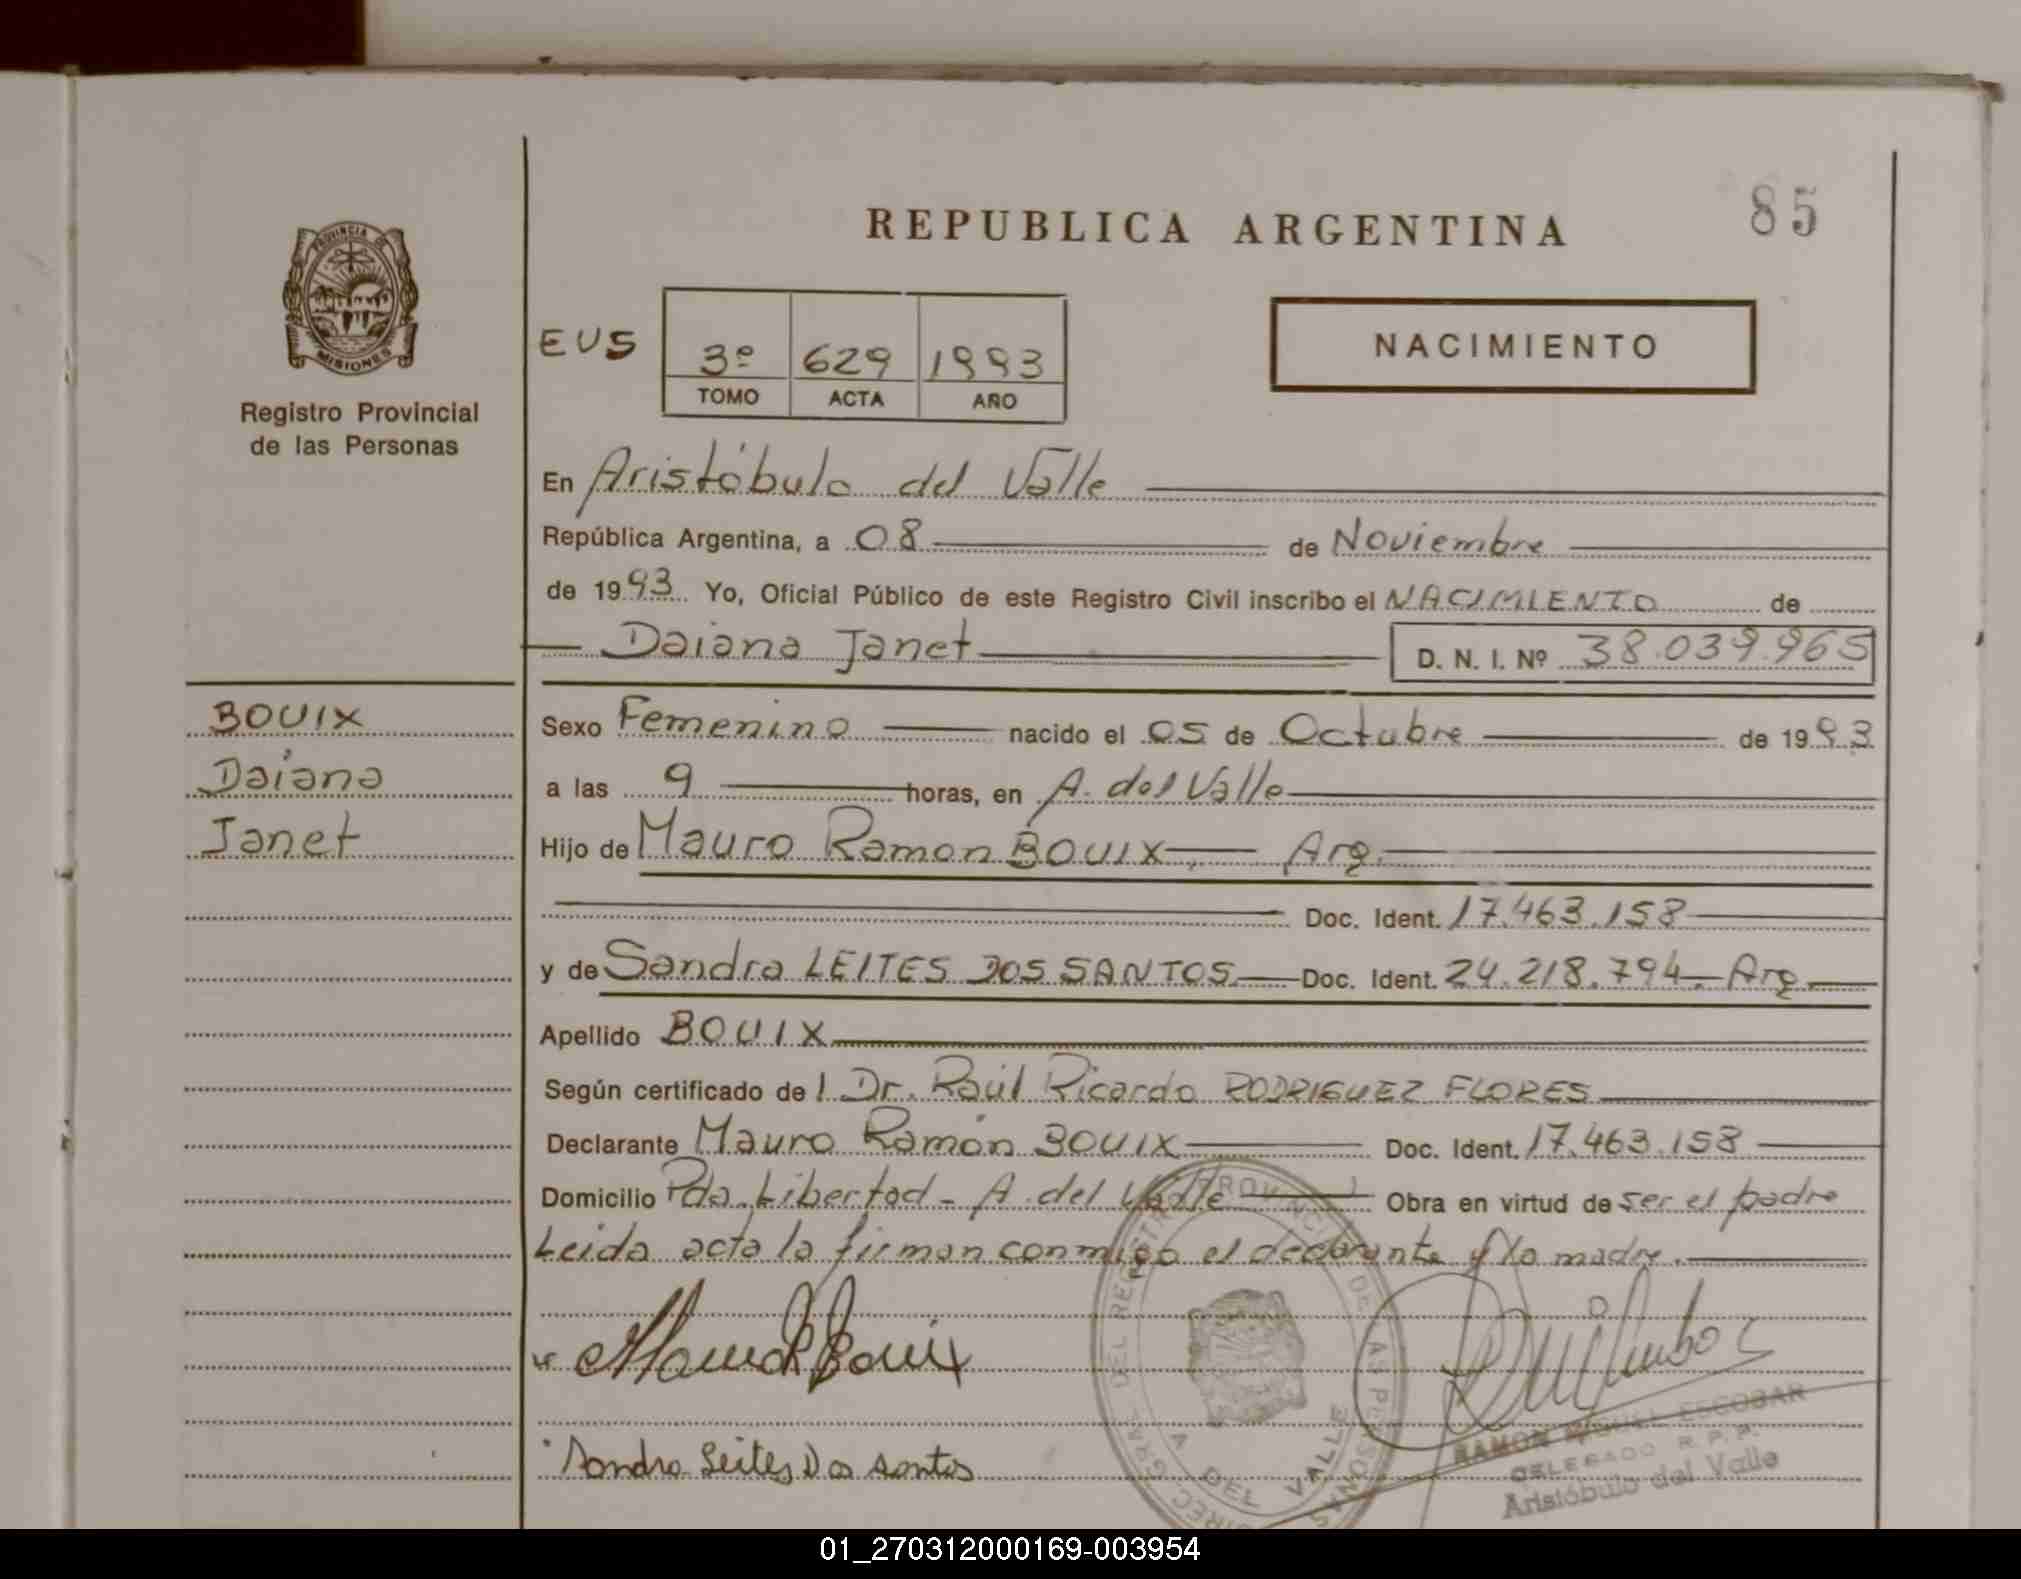 85
REPUBLICA ARGENTINA
PROVINCIA DE
MISIONES
Registro Provincial
de las Personas
EUS
3º 629 1993
TOMO ACTA AÑO
NACIMIENTO
En Aristóbulo del Valle
República Argentina, a 08 de Noviembre
de 1993 Yo, Oficial Público de este Registro Civil inscribo el NACIMIENTO de
Daiana Janet D. N. I. Nº 38.039.965
BOUIX
Daiana
Janet
Sexo Femenino nacido el 05 de Octubre de 1993
a las 9 horas, en A. del Valle
Hijo de Mauro Ramon BOUIX, Arg.
Doc. Ident. 17.463.158
y de Sandra LEITES DOS SANTOS Doc. Ident. 24.218.794 - Arg.
Apellido BOUIX
Según certificado de l Dr. Raúl Ricardo RODRIGUEZ FLORES
Declarante Mauro Ramón BOUIX Doc. Ident. 17.463.158
Domicilio Pda. Libertad - A. del Valle Obra en virtud de ser el padre
Leida acta la firman conmigo el declarante y la madre.
Mauro R Bouix
Sandra Leites Dos santos
A DEL VALLE
RAMON MIGUEL ESCOBAR
DELEGADO R. P. P.
Aristóbulo del Valle
01_270312000169-003954